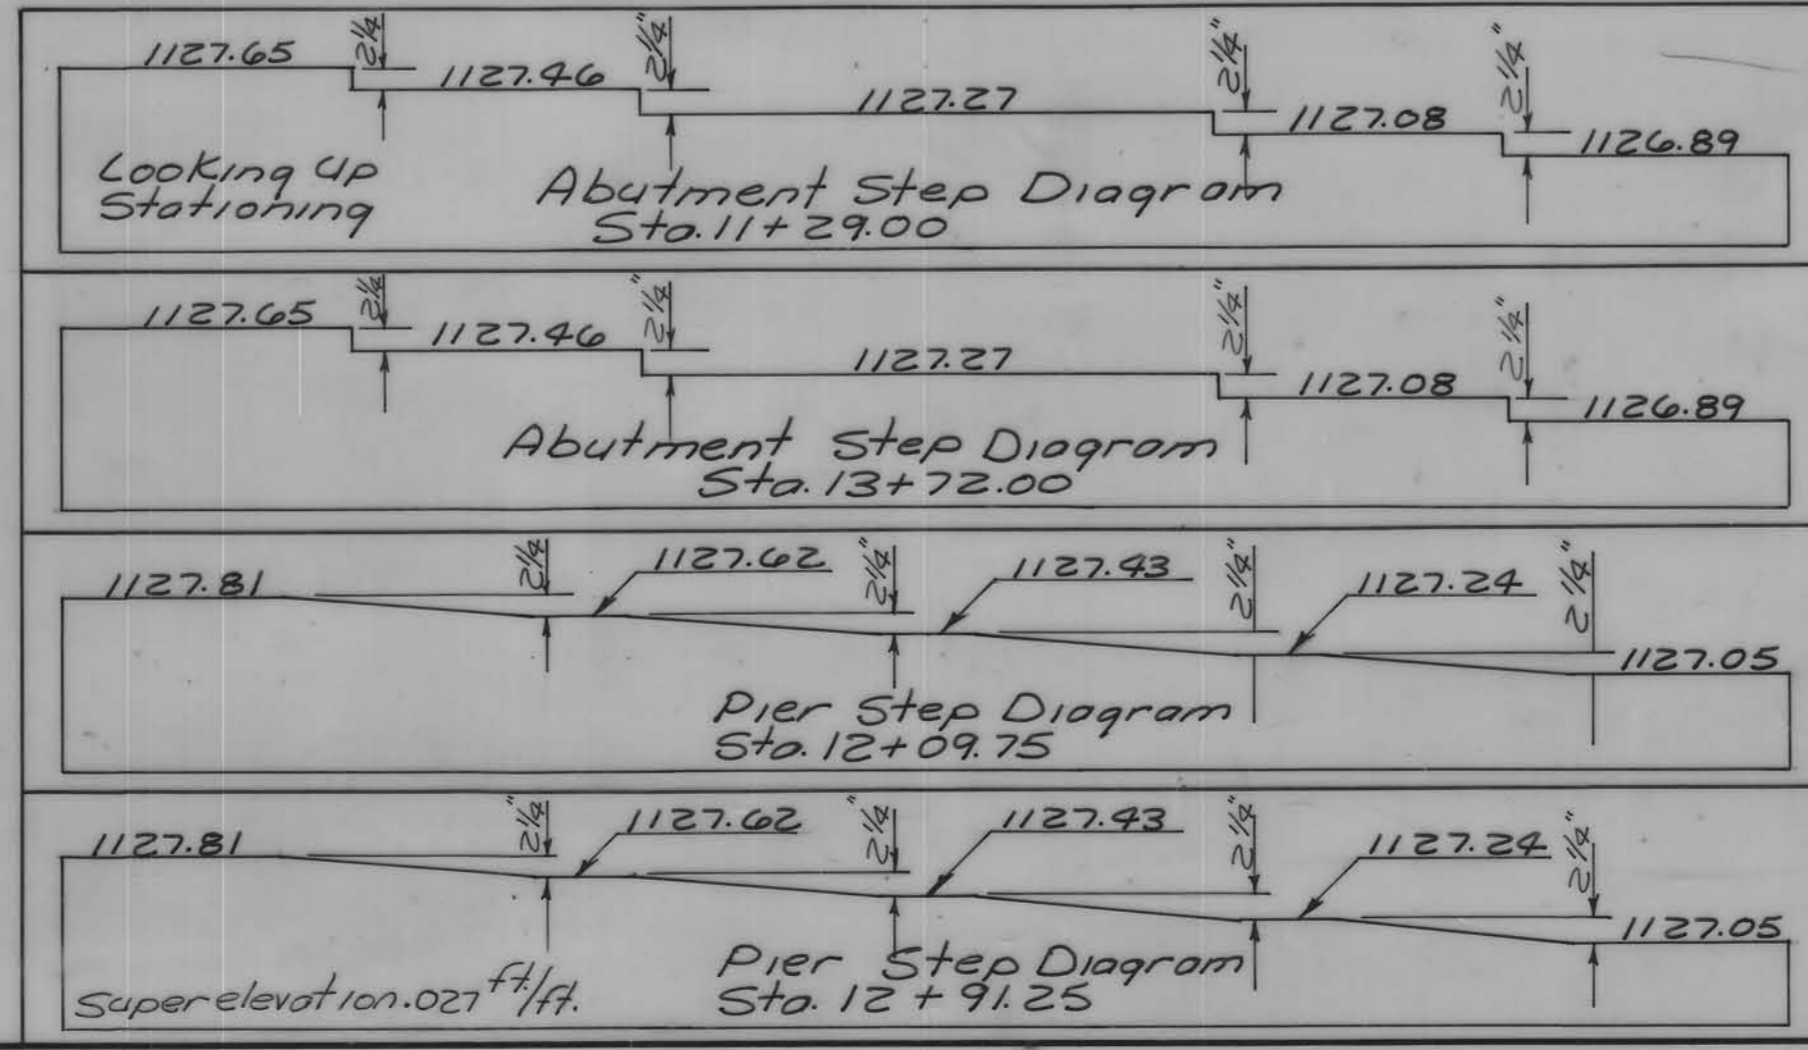 1127.65
2¼
1127.46
2¼"
1127.27
2¼"
1127.08
2¼"
1126.89
Looking Up
Stationing
Abutment Step Diagram
Sta. 11+29.00
1127.65
2¼
1127.46
2¼"
1127.27
2¼"
1127.08
2¼"
1126.89
Abutment Step Diagram
Sta. 13+72.00
1127.81
2¼
1127.62
2¼"
1127.43
2¼"
1127.24
2¼"
1127.05
Pier Step Diagram
Sta. 12+09.75
1127.81
2¼"
1127.62
2¼"
1127.43
2¼"
1127.24
2¼"
1127.05
Superelevation .027 ft./ft.
Pier Step Diagram
Sta. 12+91.25